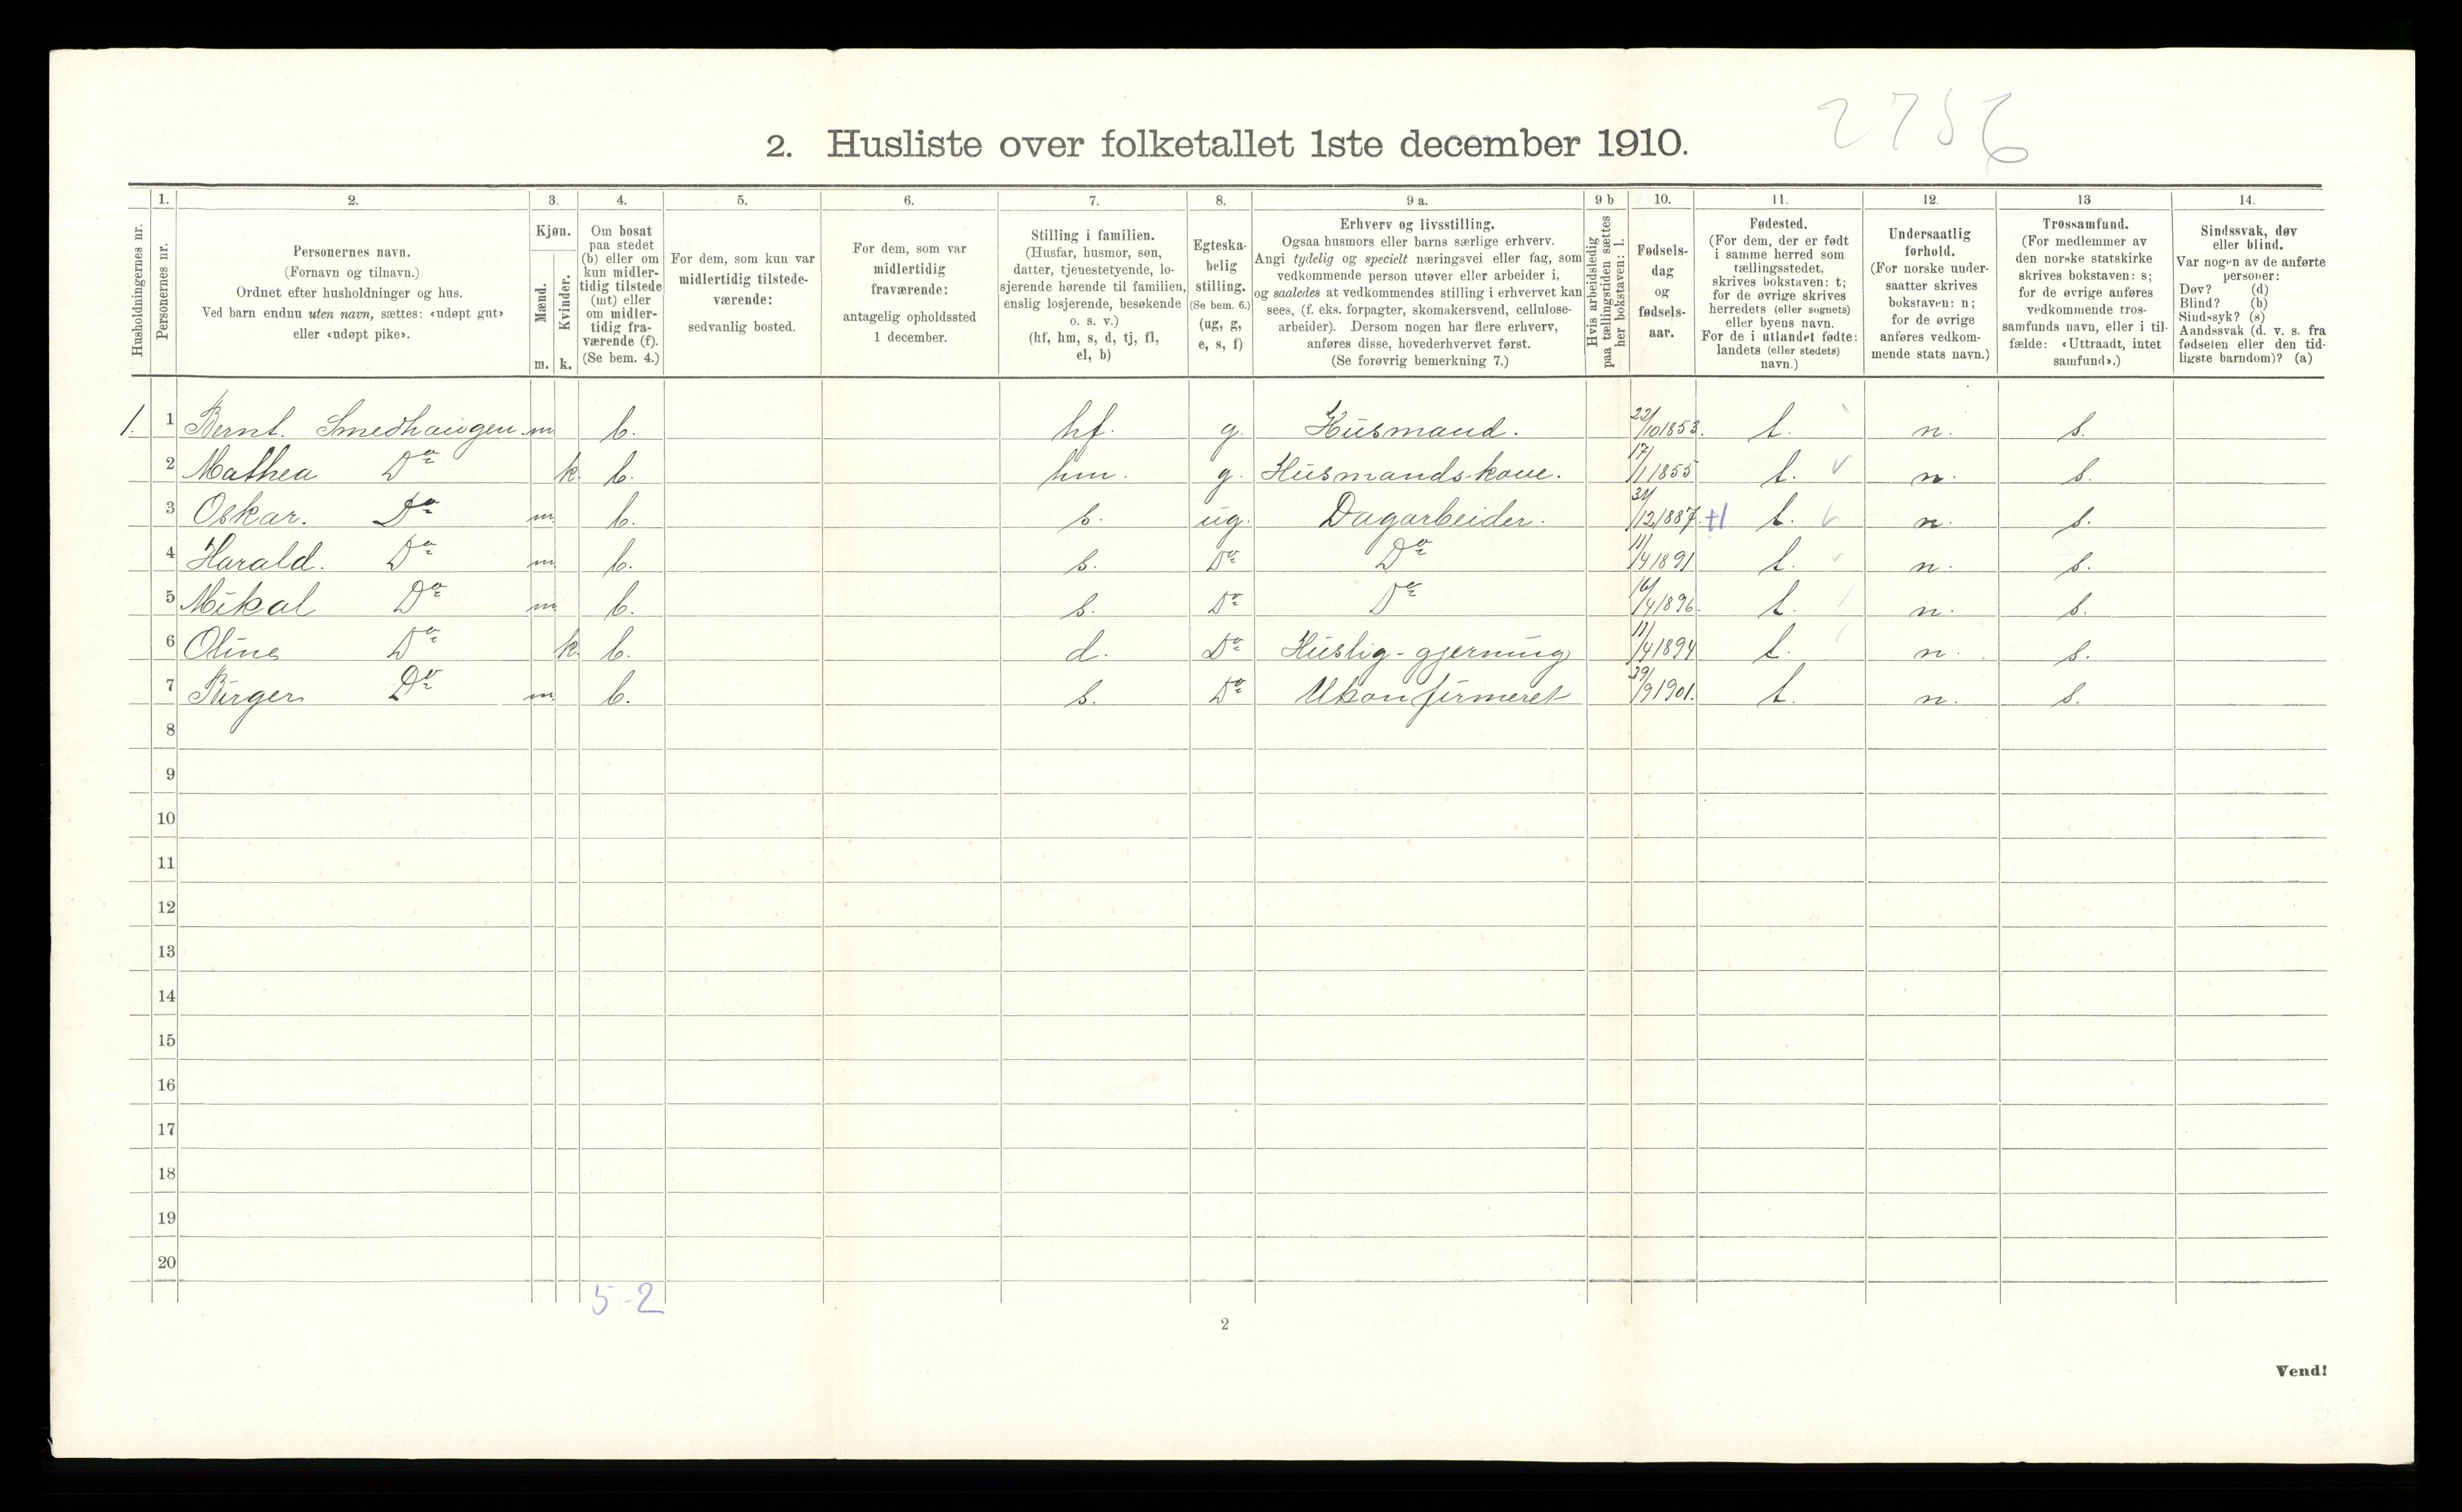 2756
2. Husliste over folketallet 1ste december 1910.
1. 2. 3. 4. 5. 6. 7. 8. 9 a. 9 b 10. 11. 12. 13 14.
Husholdningernes nr.
Personernes nr.
Personernes navn.
(Fornavn og tilnavn.)
Ordnet efter husholdninger og hus.
Ved barn endnu uten navn, sættes: «udøpt gut»
eller «udøpt pike».
Kjøn.
Mænd.
Kvinder.
m. k.
Om bosat
paa stedet
(b) eller om
kun midler-
tidig tilstede
(mt) eller
om midler-
tidig fra-
værende (f).
(Se bem. 4.)
For dem, som kun var
midlertidig tilstede-
værende:
sedvanlig bosted.
For dem, som var
midlertidig
fraværende:
antagelig opholdssted
1 december.
Stilling i familien.
(Husfar, husmor, søn,
datter, tjenestetyende, lo-
sjerende hørende til familien,
enslig losjerende, besøkende
o. s. v.)
(hf, hm, s, d, tj, fl,
el, b)
Egteska-
belig
stilling.
(Se bem. 6.)
(ug, g,
e, s, f)
Erhverv og livsstilling.
Ogsaa husmors eller barns særlige erhverv.
Angi tydelig og specielt næringsvei eller fag, som
vedkommende person utøver eller arbeider i,
og saaledes at vedkommendes stilling i erhvervet kan
sees, (f. eks. forpagter, skomakersvend, cellulose-
arbeider). Dersom nogen har flere erhverv,
anføres disse, hovederhvervet først.
(Se forøvrig bemerkning 7.)
Hvis arbeidsledig
paa tællingstiden sættes
her bokstaven: l.
Fødsels-
dag
og
fødsels-
aar.
Fødested.
(For dem, der er født
i samme herred som
tællingsstedet,
skrives bokstaven: t;
for de øvrige skrives
herredets (eller sognets)
eller byens navn.
For de i utlandet fødte:
landets (eller stedets)
navn.)
Undersaatlig
forhold.
(For norske under-
saatter skrives
bokstaven: n;
for de øvrige
anføres vedkom-
mende stats navn.)
Trossamfund.
(For medlemmer av
den norske statskirke
skrives bokstaven: s;
for de øvrige anføres
vedkommende tros-
samfunds navn, eller i til-
fælde: «Uttraadt, intet
samfund».)
Sindssvak, døv
eller blind.
Var nogen av de anførte
personer:
Døv? (d)
Blind? (b)
Sindssyk? (s)
Aandssvak (d. v. s. fra
fødselen eller den tid-
ligste barndom)? (a)
1. 1 Bernt. Smedhaugen. m. b. hf. g. Husmand. 22/10 1853. t. n. s.
2 Mathea Do k. b. hm. g. Husmandskone. 17/1 1855 t. n. s.
3 Oskar. Do m. b. s. ug. Dagarbeider. 31/12 1887. +1 t. n. s.
4 Harald. Do m. b. s. Do Do 11/4 1891 t. n. s.
5 Mikal Do m. b. s. Do Do 16/4 1896. t. n. s.
6 Oline Do k. b. d. Do Huslig-gjerning 11/4 1894 t. n. s.
7 Birger Do m. b. s. Do Ukonfirmeret 29/9 1901. t. n. s.
8
9
10
11
12
13
14
15
16
17
18
19
20
5-2
2
Vend!